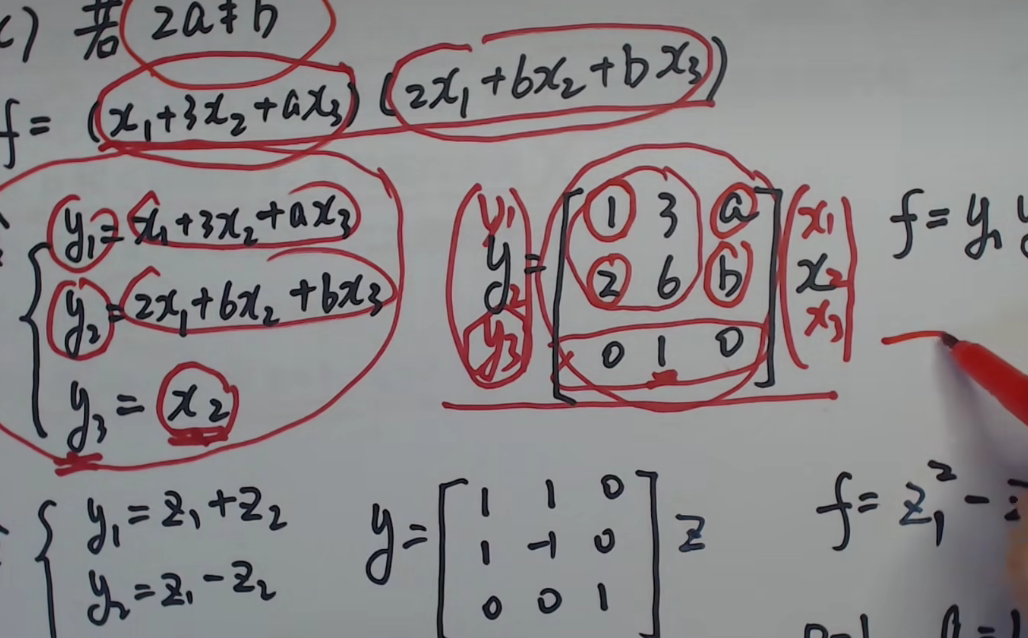 若 2a≠b
f= (x₁+3x₂+ax₃) (2x₁+6x₂+bx₃)
y₁=x₁+3x₂+ax₃
y₂=2x₁+6x₂+bx₃
y₃=x₂
y₁
y₂
y₃
=
1 3 a
2 6 b
0 1 0
x₁
x₂
x₃
f=y₁
y₁=z₁+z₂
y₂=z₁-z₂
y=
1 1 0
1 -1 0
0 0 1
z
f=z₁²-